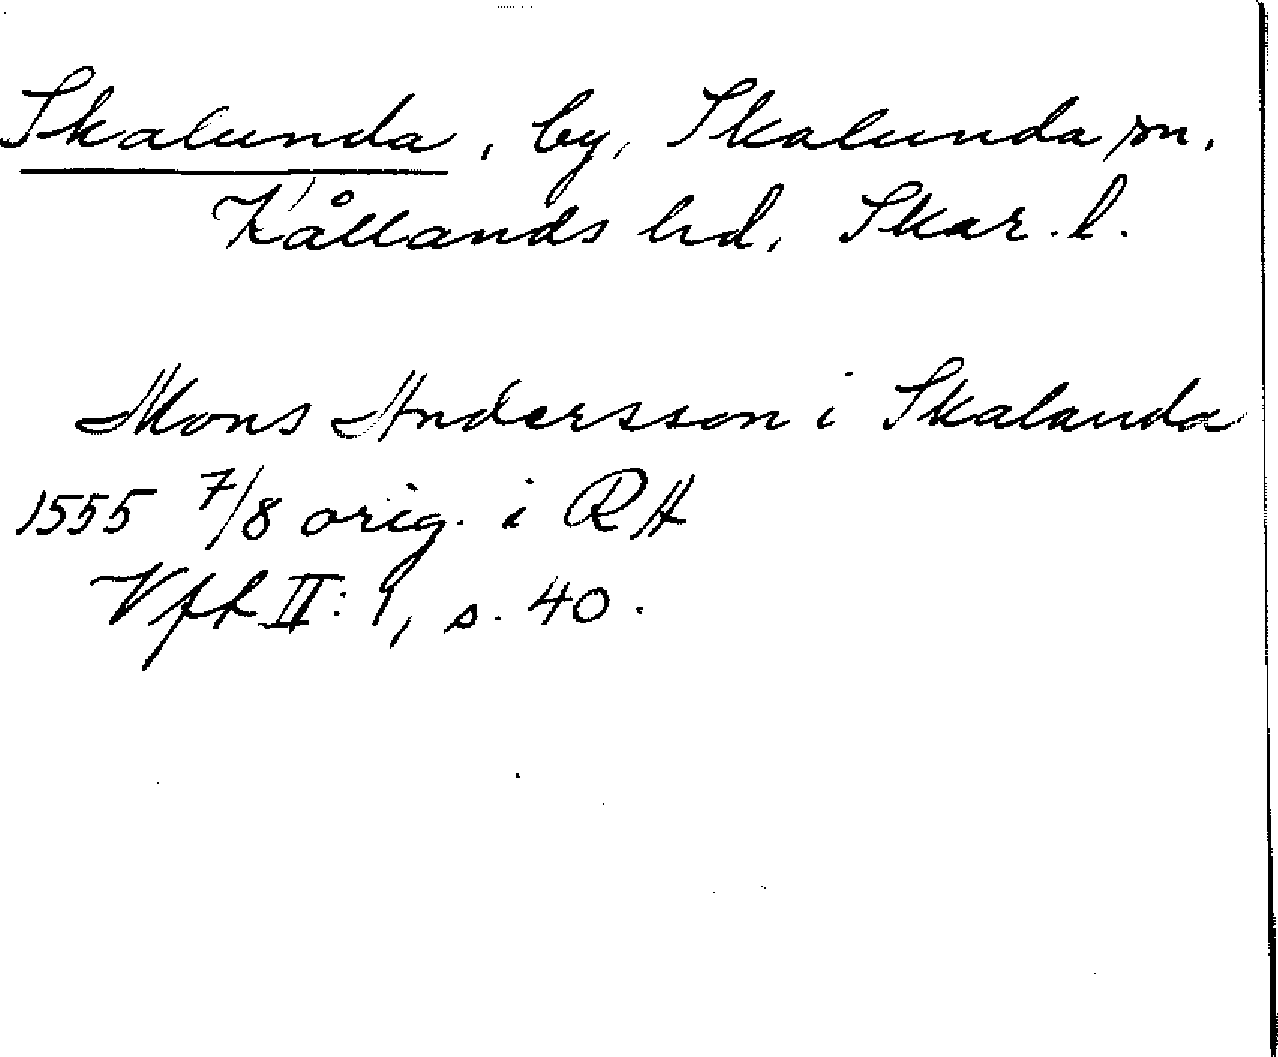 Skalunda, by, Skalunda sn.
Kållands hd. Skar. l.
Mons Andersson i Skalanda
1555 7/8 orig. i RA
Vft II: 1, s. 40.